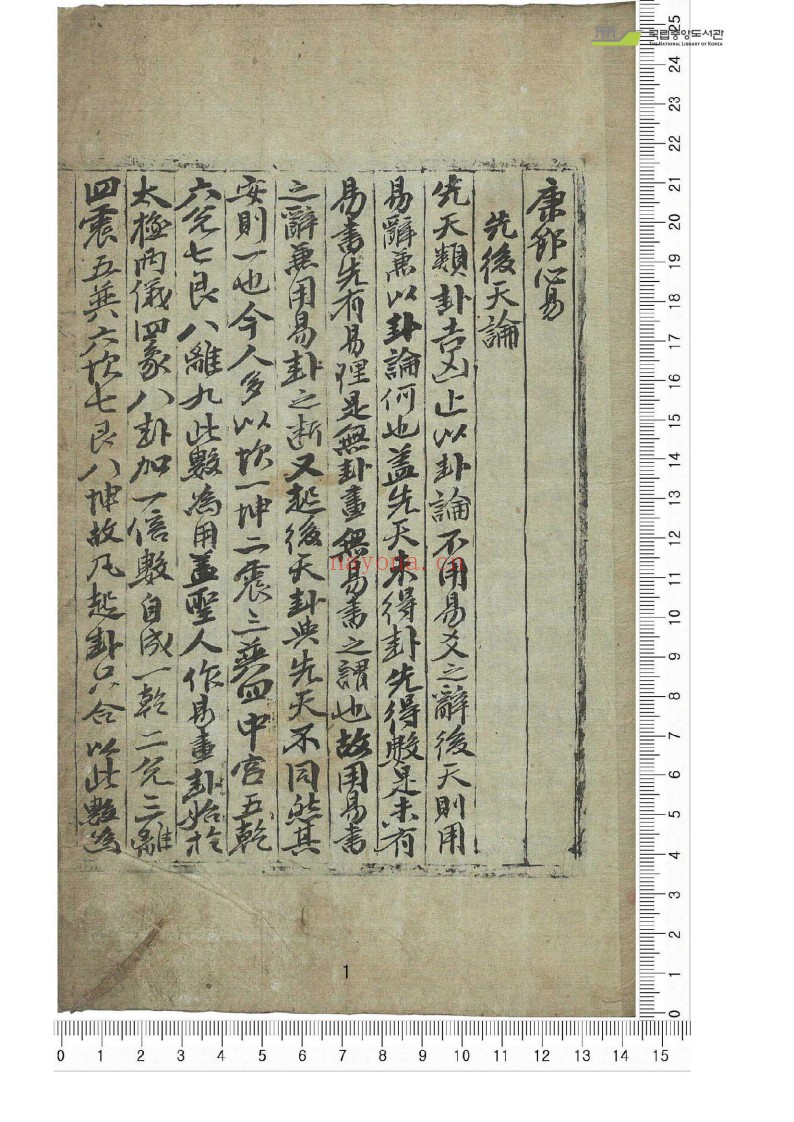 康節心易
先後天論
先天類卦吉凶止以卦論不用易爻之辭後天則用
易辭兼以卦論何也盖先天未得卦先得數是未有
易書先有易理是無卦畫無易書之謂也故用易書
之辭兼用易卦之断又起後天卦與先天不同然其
安則一也今人多以坎一坤二震三巽四中宮五乾
六兌七艮八離九此數為用盖聖人作易畫卦始於
太極兩儀四象八卦加一倍數自成一乾二兌三離
四震五巽六坎七艮八坤故凡起卦只合以此數為
1
국립중앙도서관
THE NATIONAL LIBRARY OF KOREA
nayona.cn
25
24
23
22
21
20
19
18
17
16
15
14
13
12
11
10
9
8
7
6
5
4
3
2
1
0
0 1 2 3 4 5 6 7 8 9 10 11 12 13 14 15